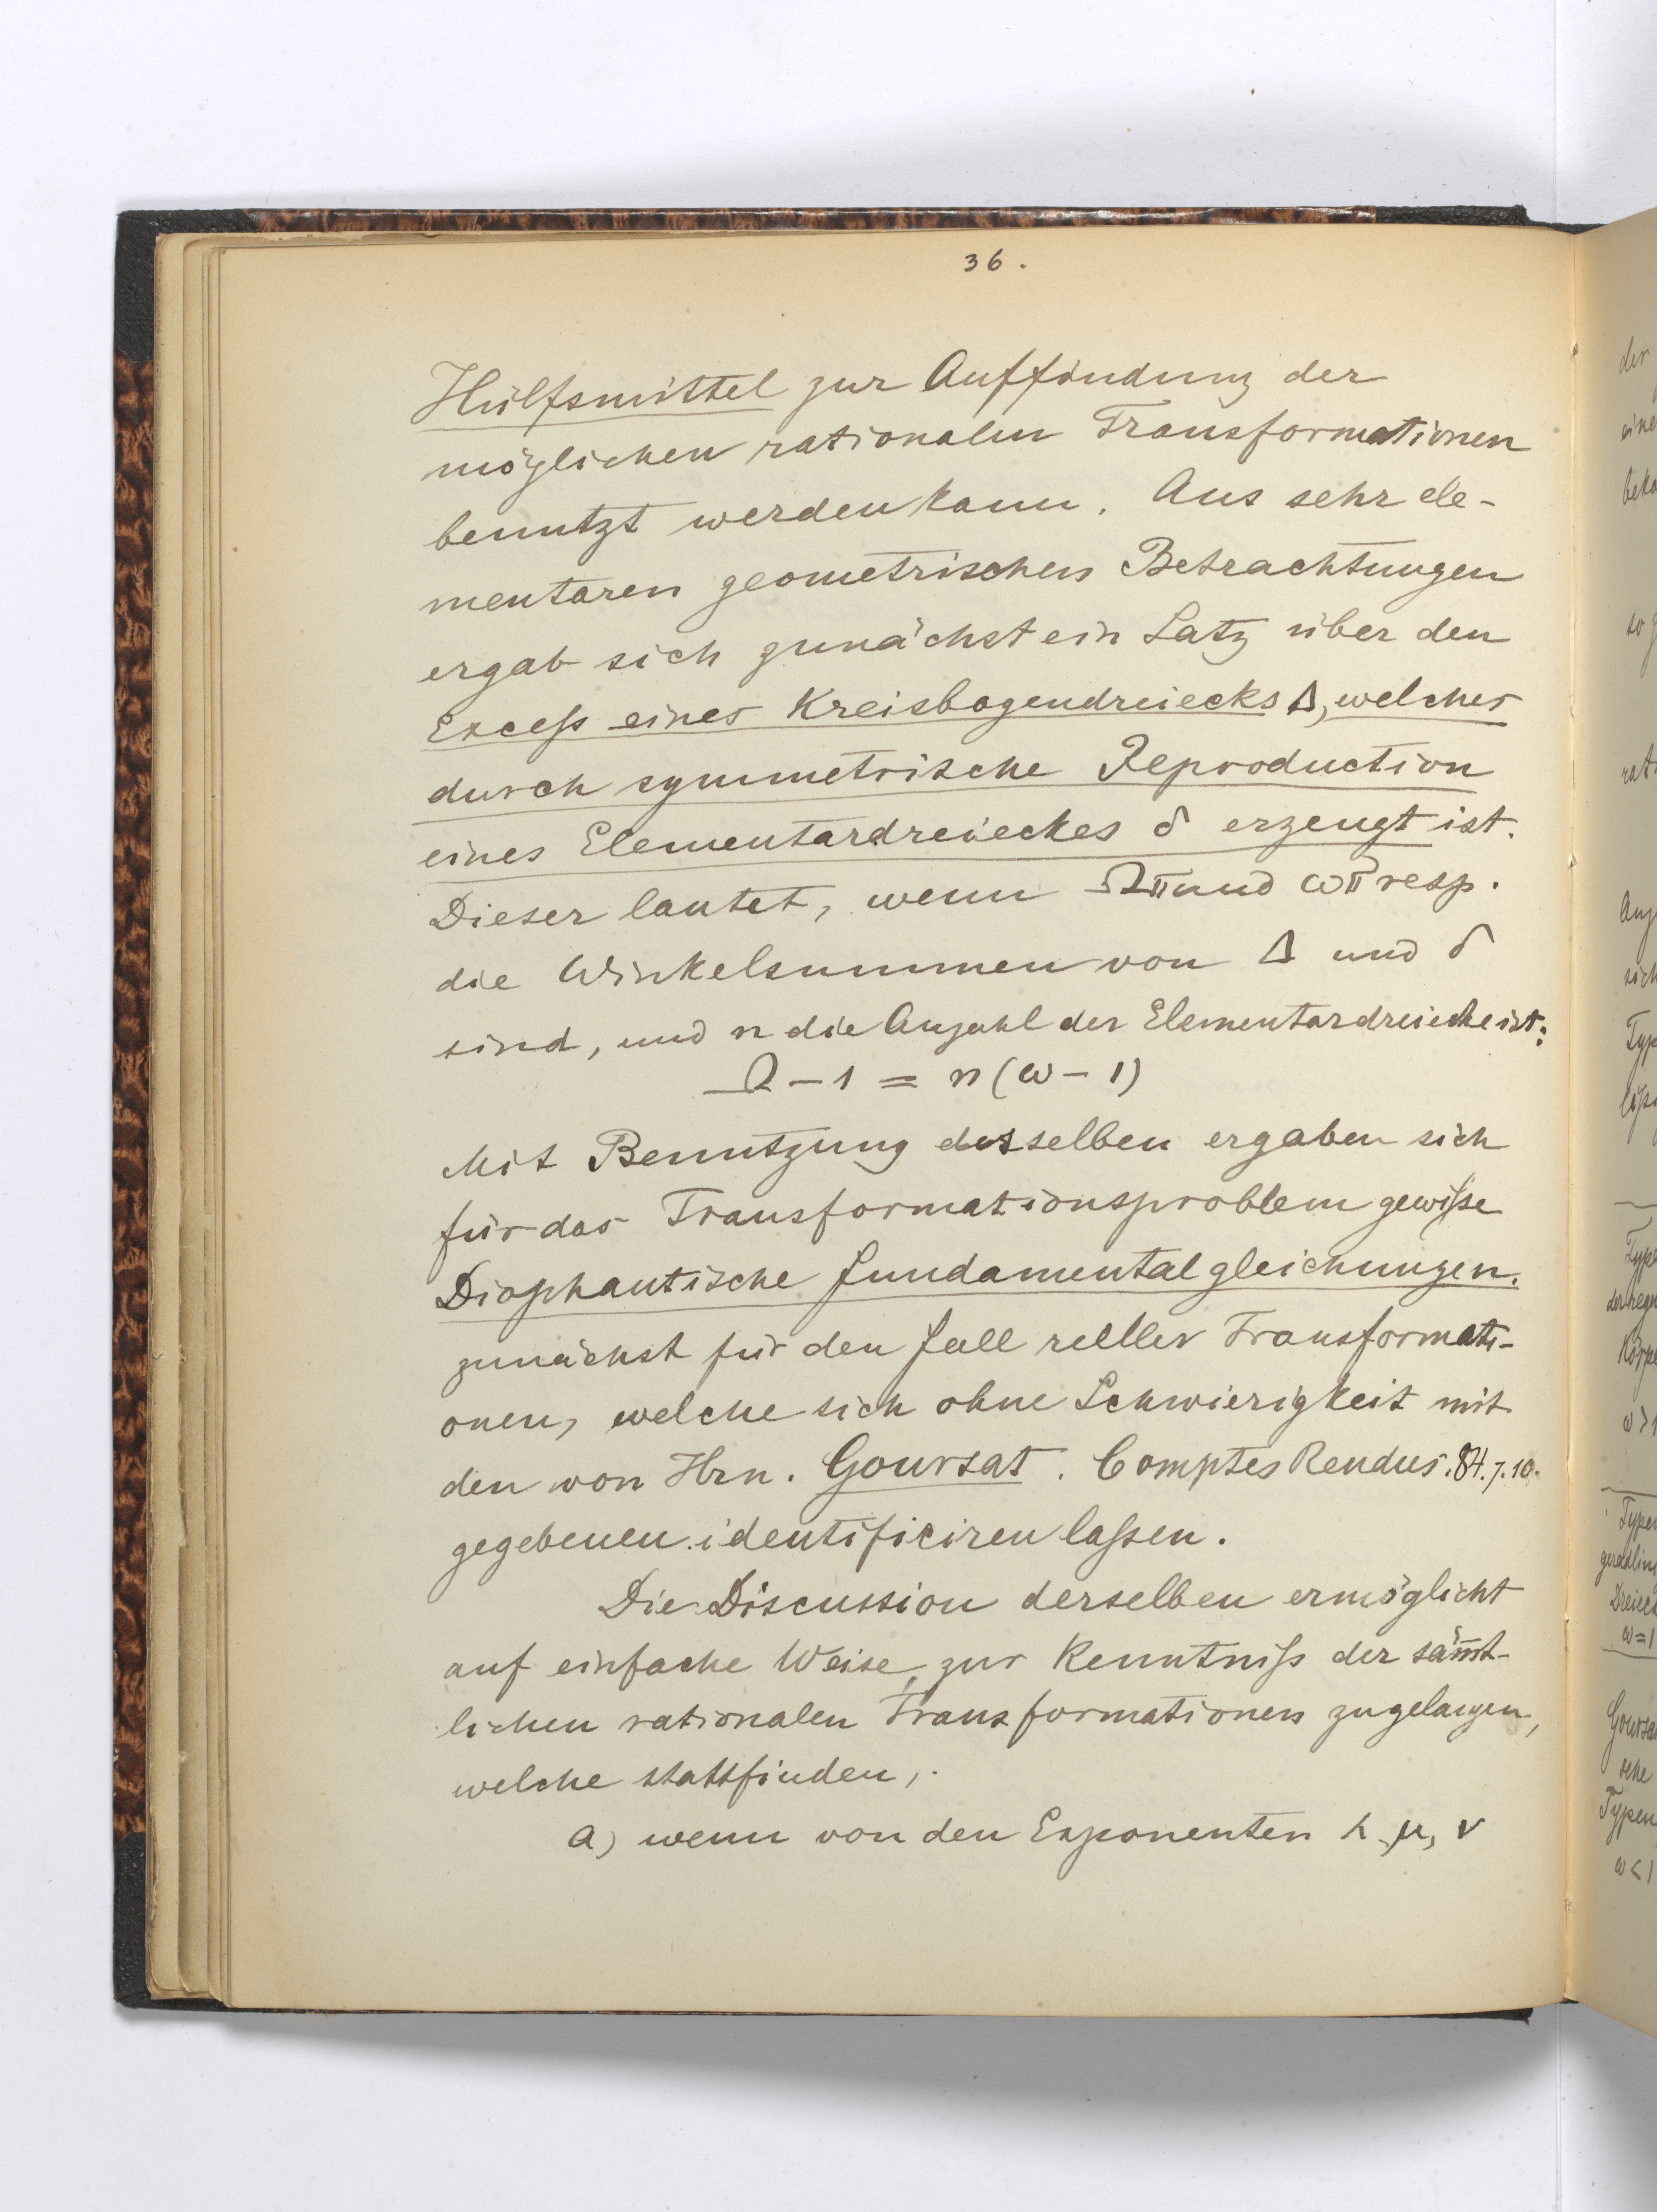 36.
Hülfsmittel zur Auffindung der
möglichen rationalen Transformationen
benutzt werden kann. Aus sehr ele-
mentaren geometrischen Betrachtungen
ergab sich zunächst ein Satz über den
Exceſs eines Kreisbogendreiecks Δ, welches
durch symmetrische Reproduction
eines Elementardreieckes δ erzeugt ist.
Dieser lautet, wenn Ωπ und ωπ resp.
die Winkelsummen von Δ und δ
sind, und n die Anzahl der Elementardreiecke ist:
Ω - 1 = n (ω - 1)
Mit Benutzung desselben ergaben sich
für das Transformationsproblem gewiſse
Diophantische Fundamentalgleichungen.
zunächst für den Fall reller Transformati-
onen, welche sich ohne Schwierigkeit mit
den von Hrn. Goursat. Comptes Rendus. 84. 7. 10.
gegebenen identificiren laſsen.
Die Discussion derselben ermöglicht
auf einfache Weise zur Kenntniſs der säm̅t-
lichen rationalen Transformationen zu gelangen,
welche stattfinden,
a) wenn von den Exponenten λ, μ, ν
der
eine
beko
so g
rat
sich
Typ
Type
der regu
Körpe
ω > 1
Type
geradlin
Dreiec
ω = 1
Goursa
sche
Typen
ω < 1